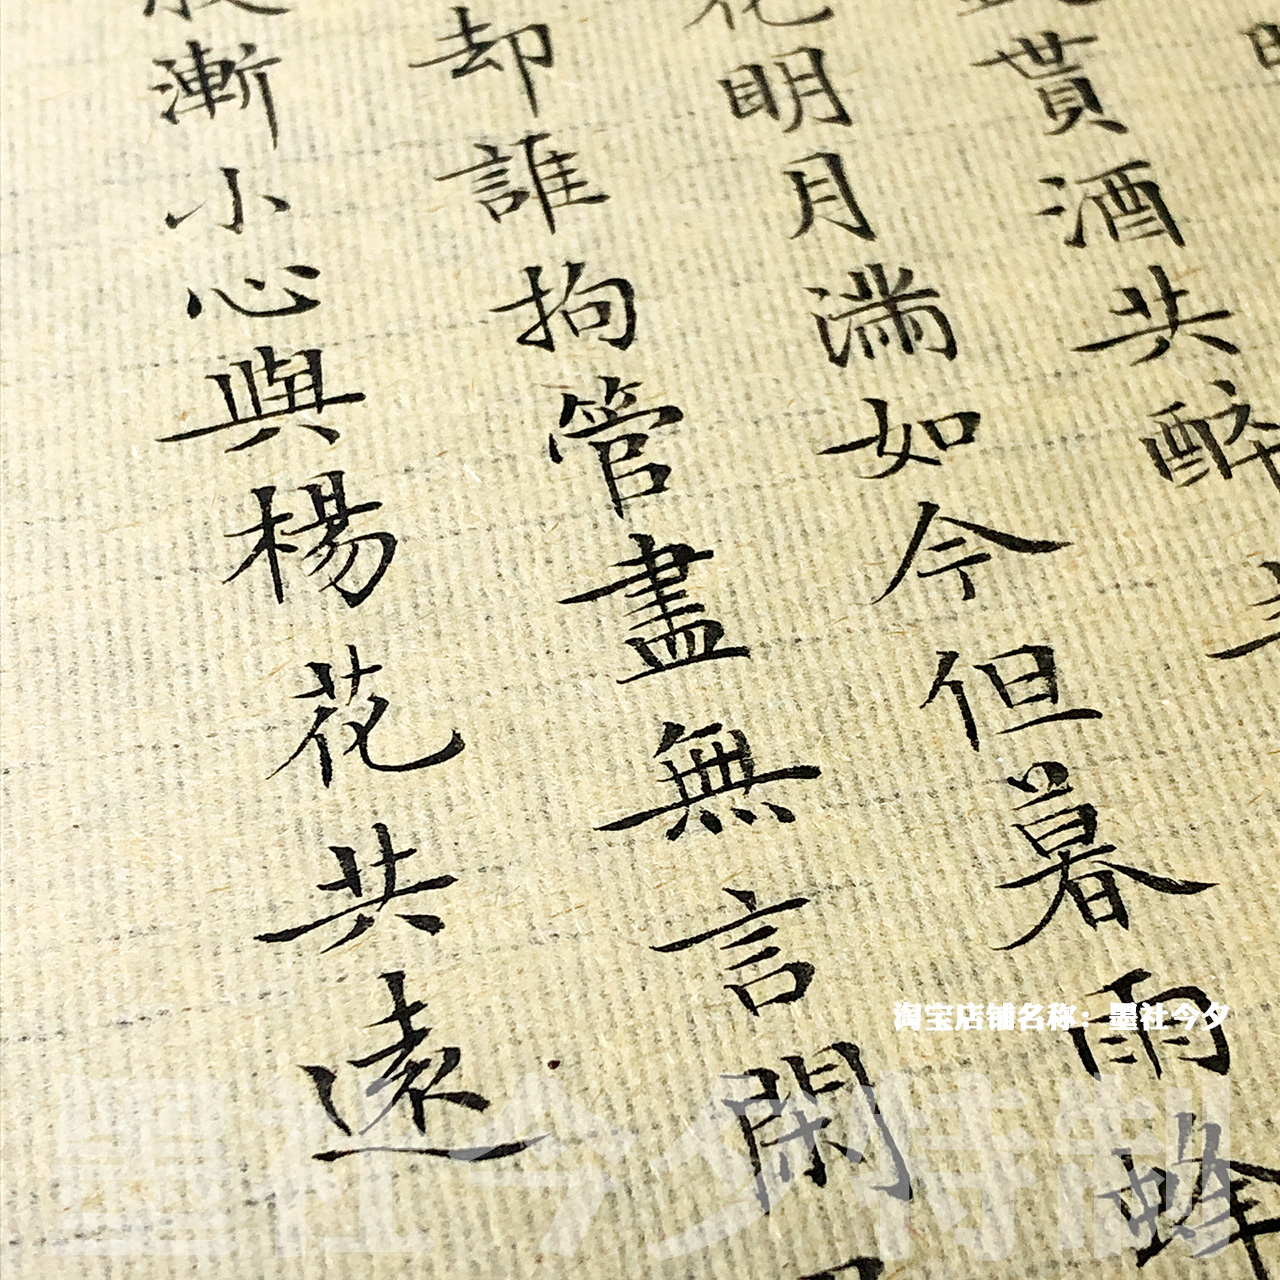 貰酒共醉
花明月滿如今但暮雨蜂
却誰拘管盡無言閑
漸小心與楊花共遠
淘宝店铺名称：墨社今夕
墨社今夕特制